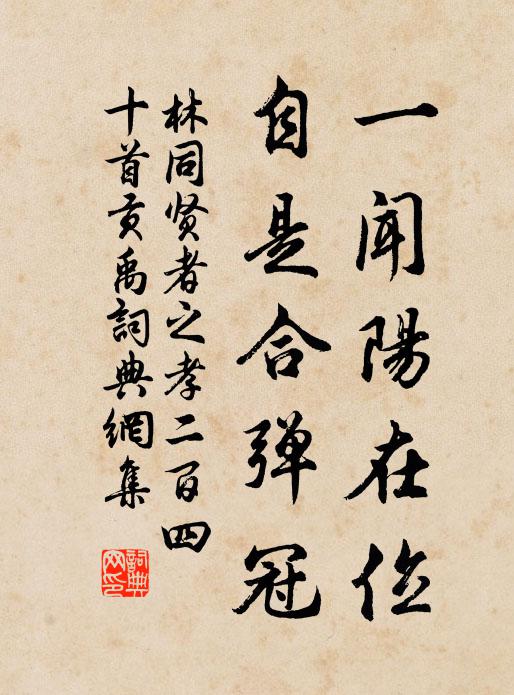 一闻陽在位
自是合弹冠
林同贤者之孝二百四
十首贡禹詞典網集
詞典
网印